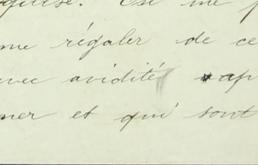 exquise. C'est me p
me régaler de ce
avec avidité ap
mer et qui sont